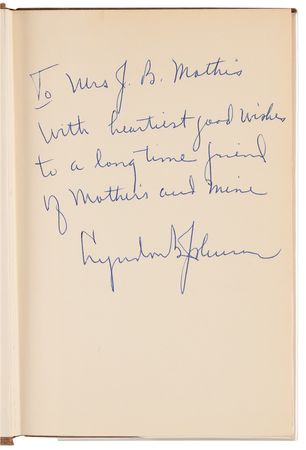 To Mrs J. B. Mathis
With heartiest good wishes
to a long time friend
of Mother's and mine
Lyndon B Johnson